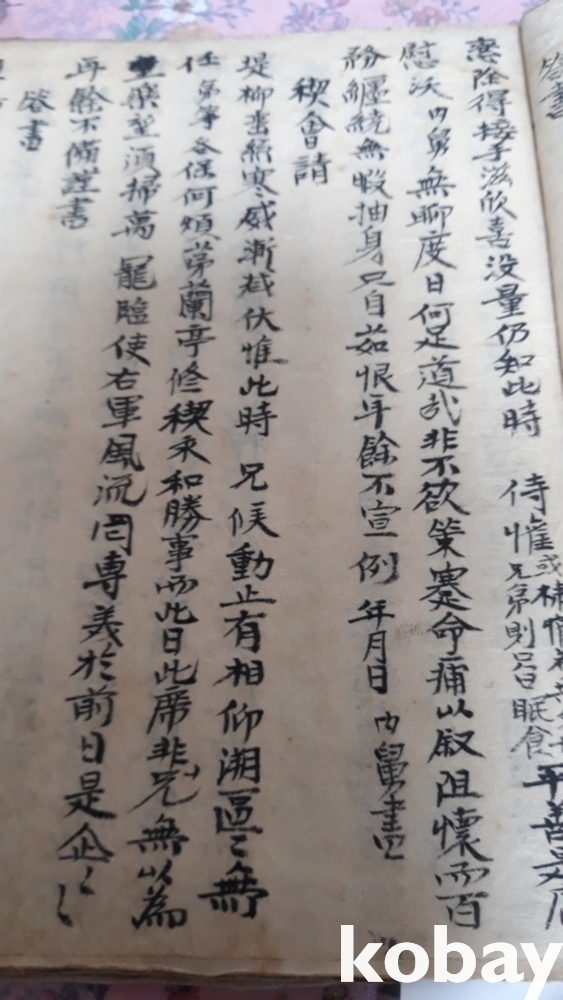 答書
寄除得接手滋欣喜沒量仍知此時 侍惟 兄弟則以眠食 平善是
慰沃 內舅無聊度日何足道哉非不欲策蹇命痛以敍阻懷而百
務纏繞無暇抽身只自茹恨耳餘不宣 例 年月日 內舅書
稧會請
堤柳垂絲寒威漸减伏惟此時 兄候動止有相仰溯區〻無
任 弟等各保何煩第蘭亭修稧永和勝事而此日此席非兄無以為
樂 須掃萬 寵臨使右軍風流罔專美於前日是企〻
再餘不備謹書
答書
kobay